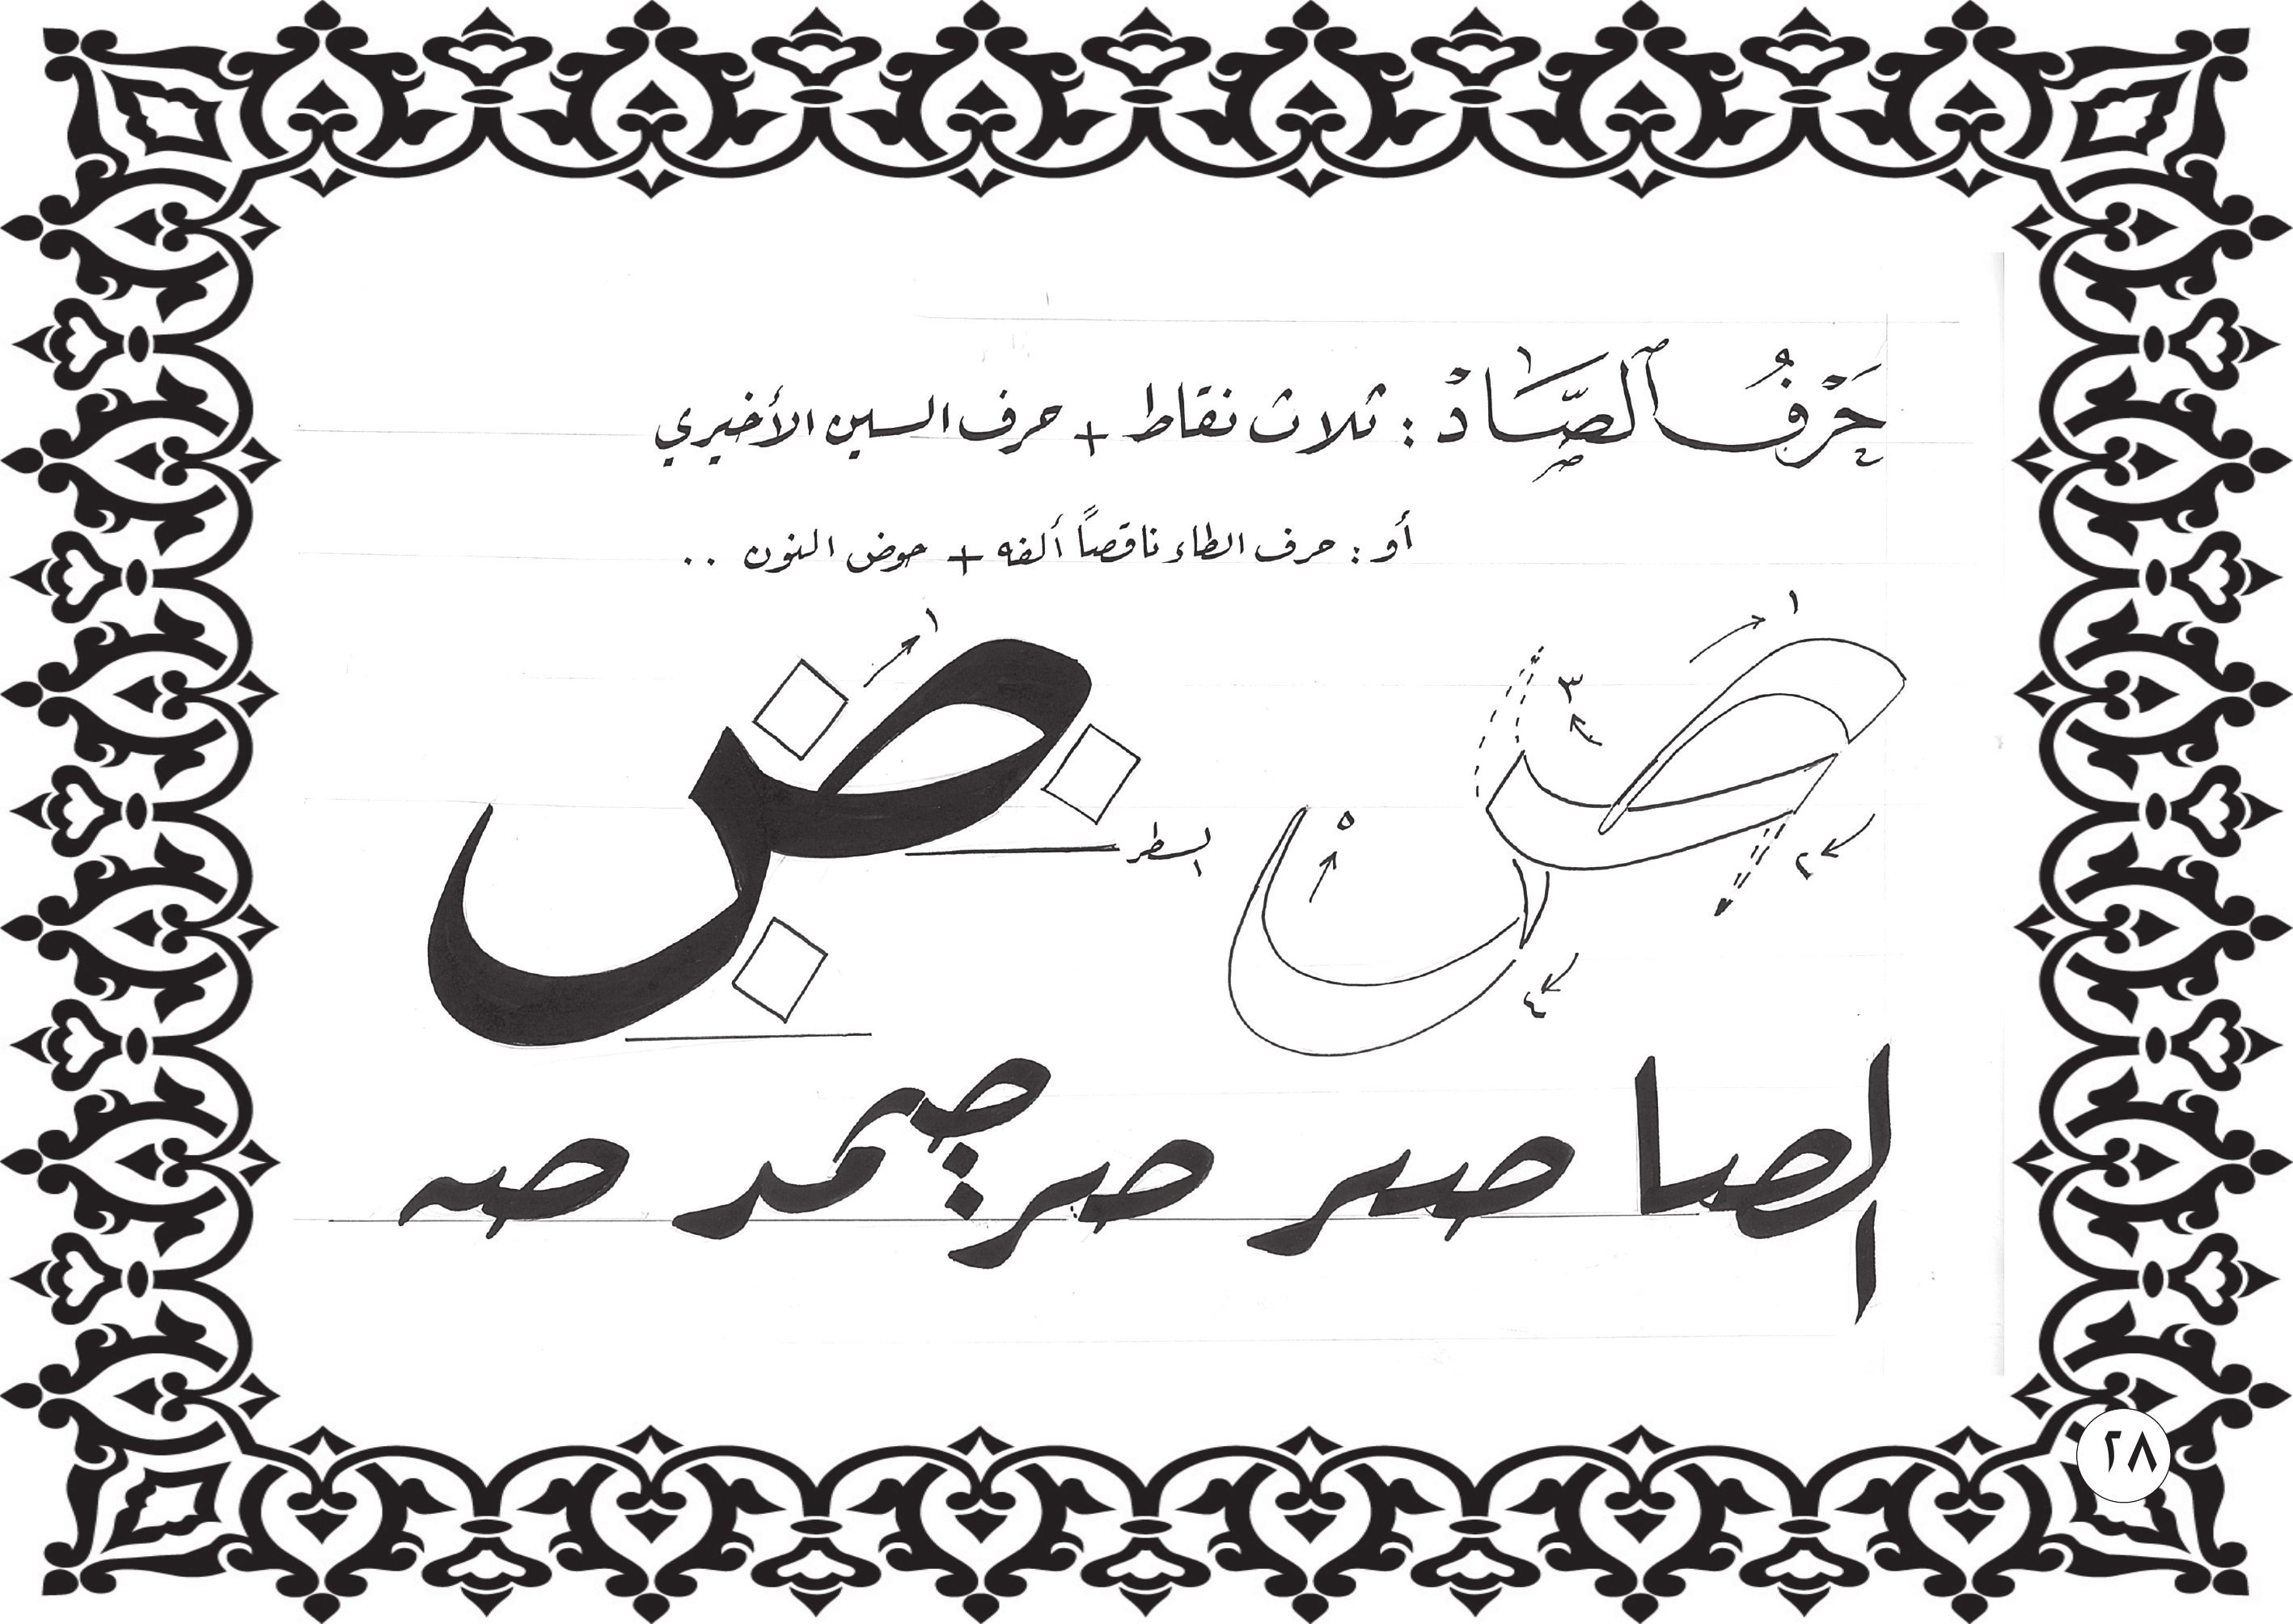 حَرْفُ ٱلصَّادْ : ثلاث نقاط + حرف السين الأخيري
أو : حرف الطاء ناقصاً ألفه + حوض النون ..
١ ١
٣
٥ ٢
السطر
٤
الصا صبر صبر صه
٢٨